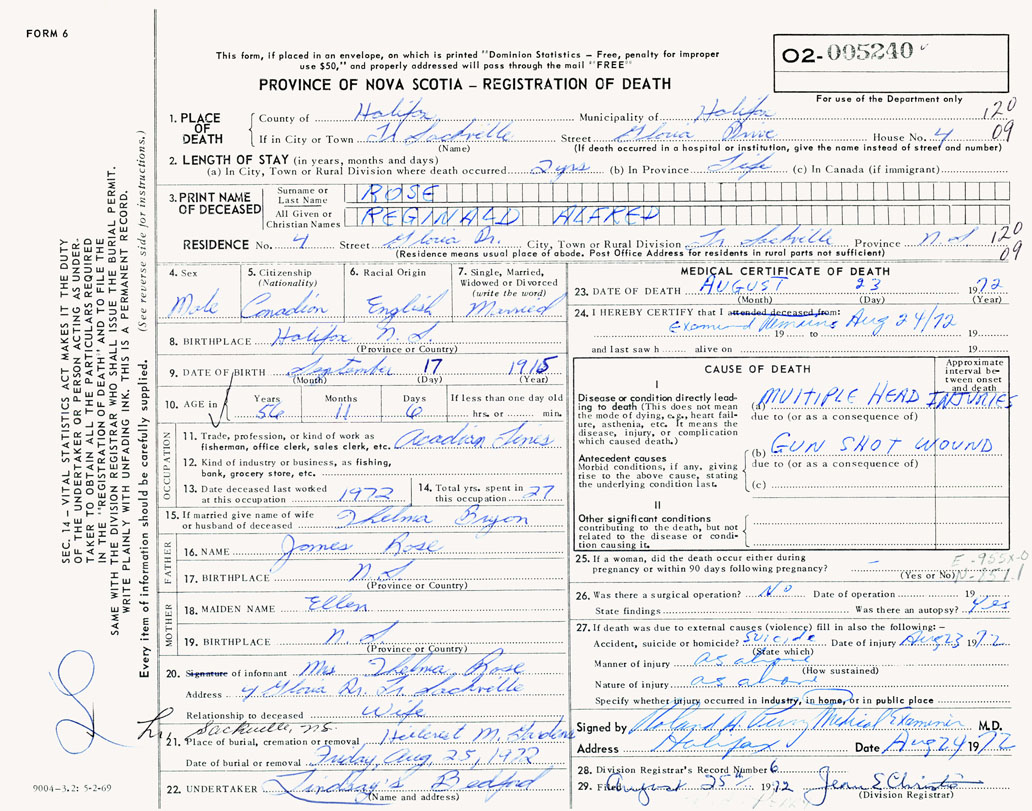 FORM 6
This form, if placed in an envelope, on which is printed "Dominion Statistics – Free, penalty for improper
use $50," and properly addressed will pass through the mail "FREE"
PROVINCE OF NOVA SCOTIA – REGISTRATION OF DEATH
O2-005240
For use of the Department only
1. PLACE OF DEATH
County of Halifax Municipality of Halifax 120
If in City or Town Lr Sackville Street Gloria Drive House No. 4 09
(Name) (If death occurred in a hospital or institution, give the name instead of street and number)
2. LENGTH OF STAY (in years, months and days)
(a) In City, Town or Rural Division where death occurred 2 yrs (b) In Province Life (c) In Canada (if immigrant)
3. PRINT NAME OF DECEASED
Surname or Last Name ROSE
All Given or Christian Names REGINALD ALFRED
RESIDENCE No. 4 Street Gloria Dr. City, Town or Rural Division Lr Sackville Province N.S 120
(Residence means usual place of abode. Post Office Address for residents in rural parts not sufficient) 09
4. Sex
Male
5. Citizenship
(Nationality)
Canadian
6. Racial Origin
English
7. Single, Married,
Widowed or Divorced
(write the word)
Married
8. BIRTHPLACE Halifax N.S.
(Province or Country)
9. DATE OF BIRTH September 17 1915
(Month) (Day) (Year)
10. AGE in
Years Months Days If less than one day old
56 11 6 hrs. or min.
OCCUPATION
11. Trade, profession, or kind of work as
fisherman, office clerk, sales clerk, etc. Acadian Lines
12. Kind of industry or business, as fishing,
bank, grocery store, etc.
13. Date deceased last worked
at this occupation 1972
14. Total yrs. spent in
this occupation 27
15. If married give name of wife
or husband of deceased Thelma Bryon
FATHER
16. NAME James Rose
17. BIRTHPLACE N.S.
(Province or Country)
MOTHER
18. MAIDEN NAME Ellen
19. BIRTHPLACE N.S
(Province or Country)
20. Signature of informant Mrs Thelma Rose
Address 4 Gloria Dr. Lr Sackville
Relationship to deceased Wife
Lr, Sackville, N.S.
21. Place of burial, cremation or removal Hillcrest M. Gardens
Date of burial or removal Friday, Aug 25, 1972
22. UNDERTAKER Lindsay's Bedford
(Name and address)
MEDICAL CERTIFICATE OF DEATH
23. DATE OF DEATH AUGUST 23 1972
(Month) (Day) (Year)
24. I HEREBY CERTIFY that I attended deceased from:
Examined Remains Aug 24/72
19 to 19
and last saw h alive on 19
CAUSE OF DEATH
Approximate interval between onset and death
I
Disease or condition directly leading
to death (This does not mean
the mode of dying, e.g., heart failure,
asthenia, etc. It means the
disease, injury, or complication
which caused death.)
(a) MULTIPLE HEAD INJURIES
due to (or as a consequence of)
Antecedent causes
Morbid conditions, if any, giving
rise to the above cause, stating
the underlying condition last.
(b) GUN SHOT WOUND
due to (or as a consequence of)
(c)
II
Other significant conditions
contributing to the death, but not
related to the disease or condition
causing it.
25. If a woman, did the death occur either during
pregnancy or within 90 days following pregnancy? –
(Yes or No)
E-955X-0
N-851.1
26. Was there a surgical operation? No Date of operation 19
State findings Was there an autopsy? Yes
27. If death was due to external causes (violence) fill in also the following: –
Accident, suicide or homicide? Suicide Date of injury Aug 23 1972
(State which)
Manner of injury as above
(How sustained)
Nature of injury as above
Specify whether injury occurred in industry, in home, or in public place
Signed by Roland H. Perry Medical Examiner M.D.
Address Halifax Date Aug 24 1972
28. Division Registrar's Record Number 6
29. Filed August 25th 1972 Jean E. Christie
(Division Registrar)
SEC. 14 – VITAL STATISTICS ACT MAKES IT THE DUTY
OF THE UNDERTAKER OR PERSON ACTING AS UNDER-
TAKER TO OBTAIN ALL THE PARTICULARS REQUIRED
IN THE "REGISTRATION OF DEATH" AND TO FILE THE
SAME WITH THE DIVISION REGISTRAR WHO SHALL ISSUE THE BURIAL PERMIT.
WRITE PLAINLY WITH UNFADING INK. THIS IS A PERMANENT RECORD.
Every item of information should be carefully supplied. (See reverse side for instructions.)
9004-3.2: 5-2-69